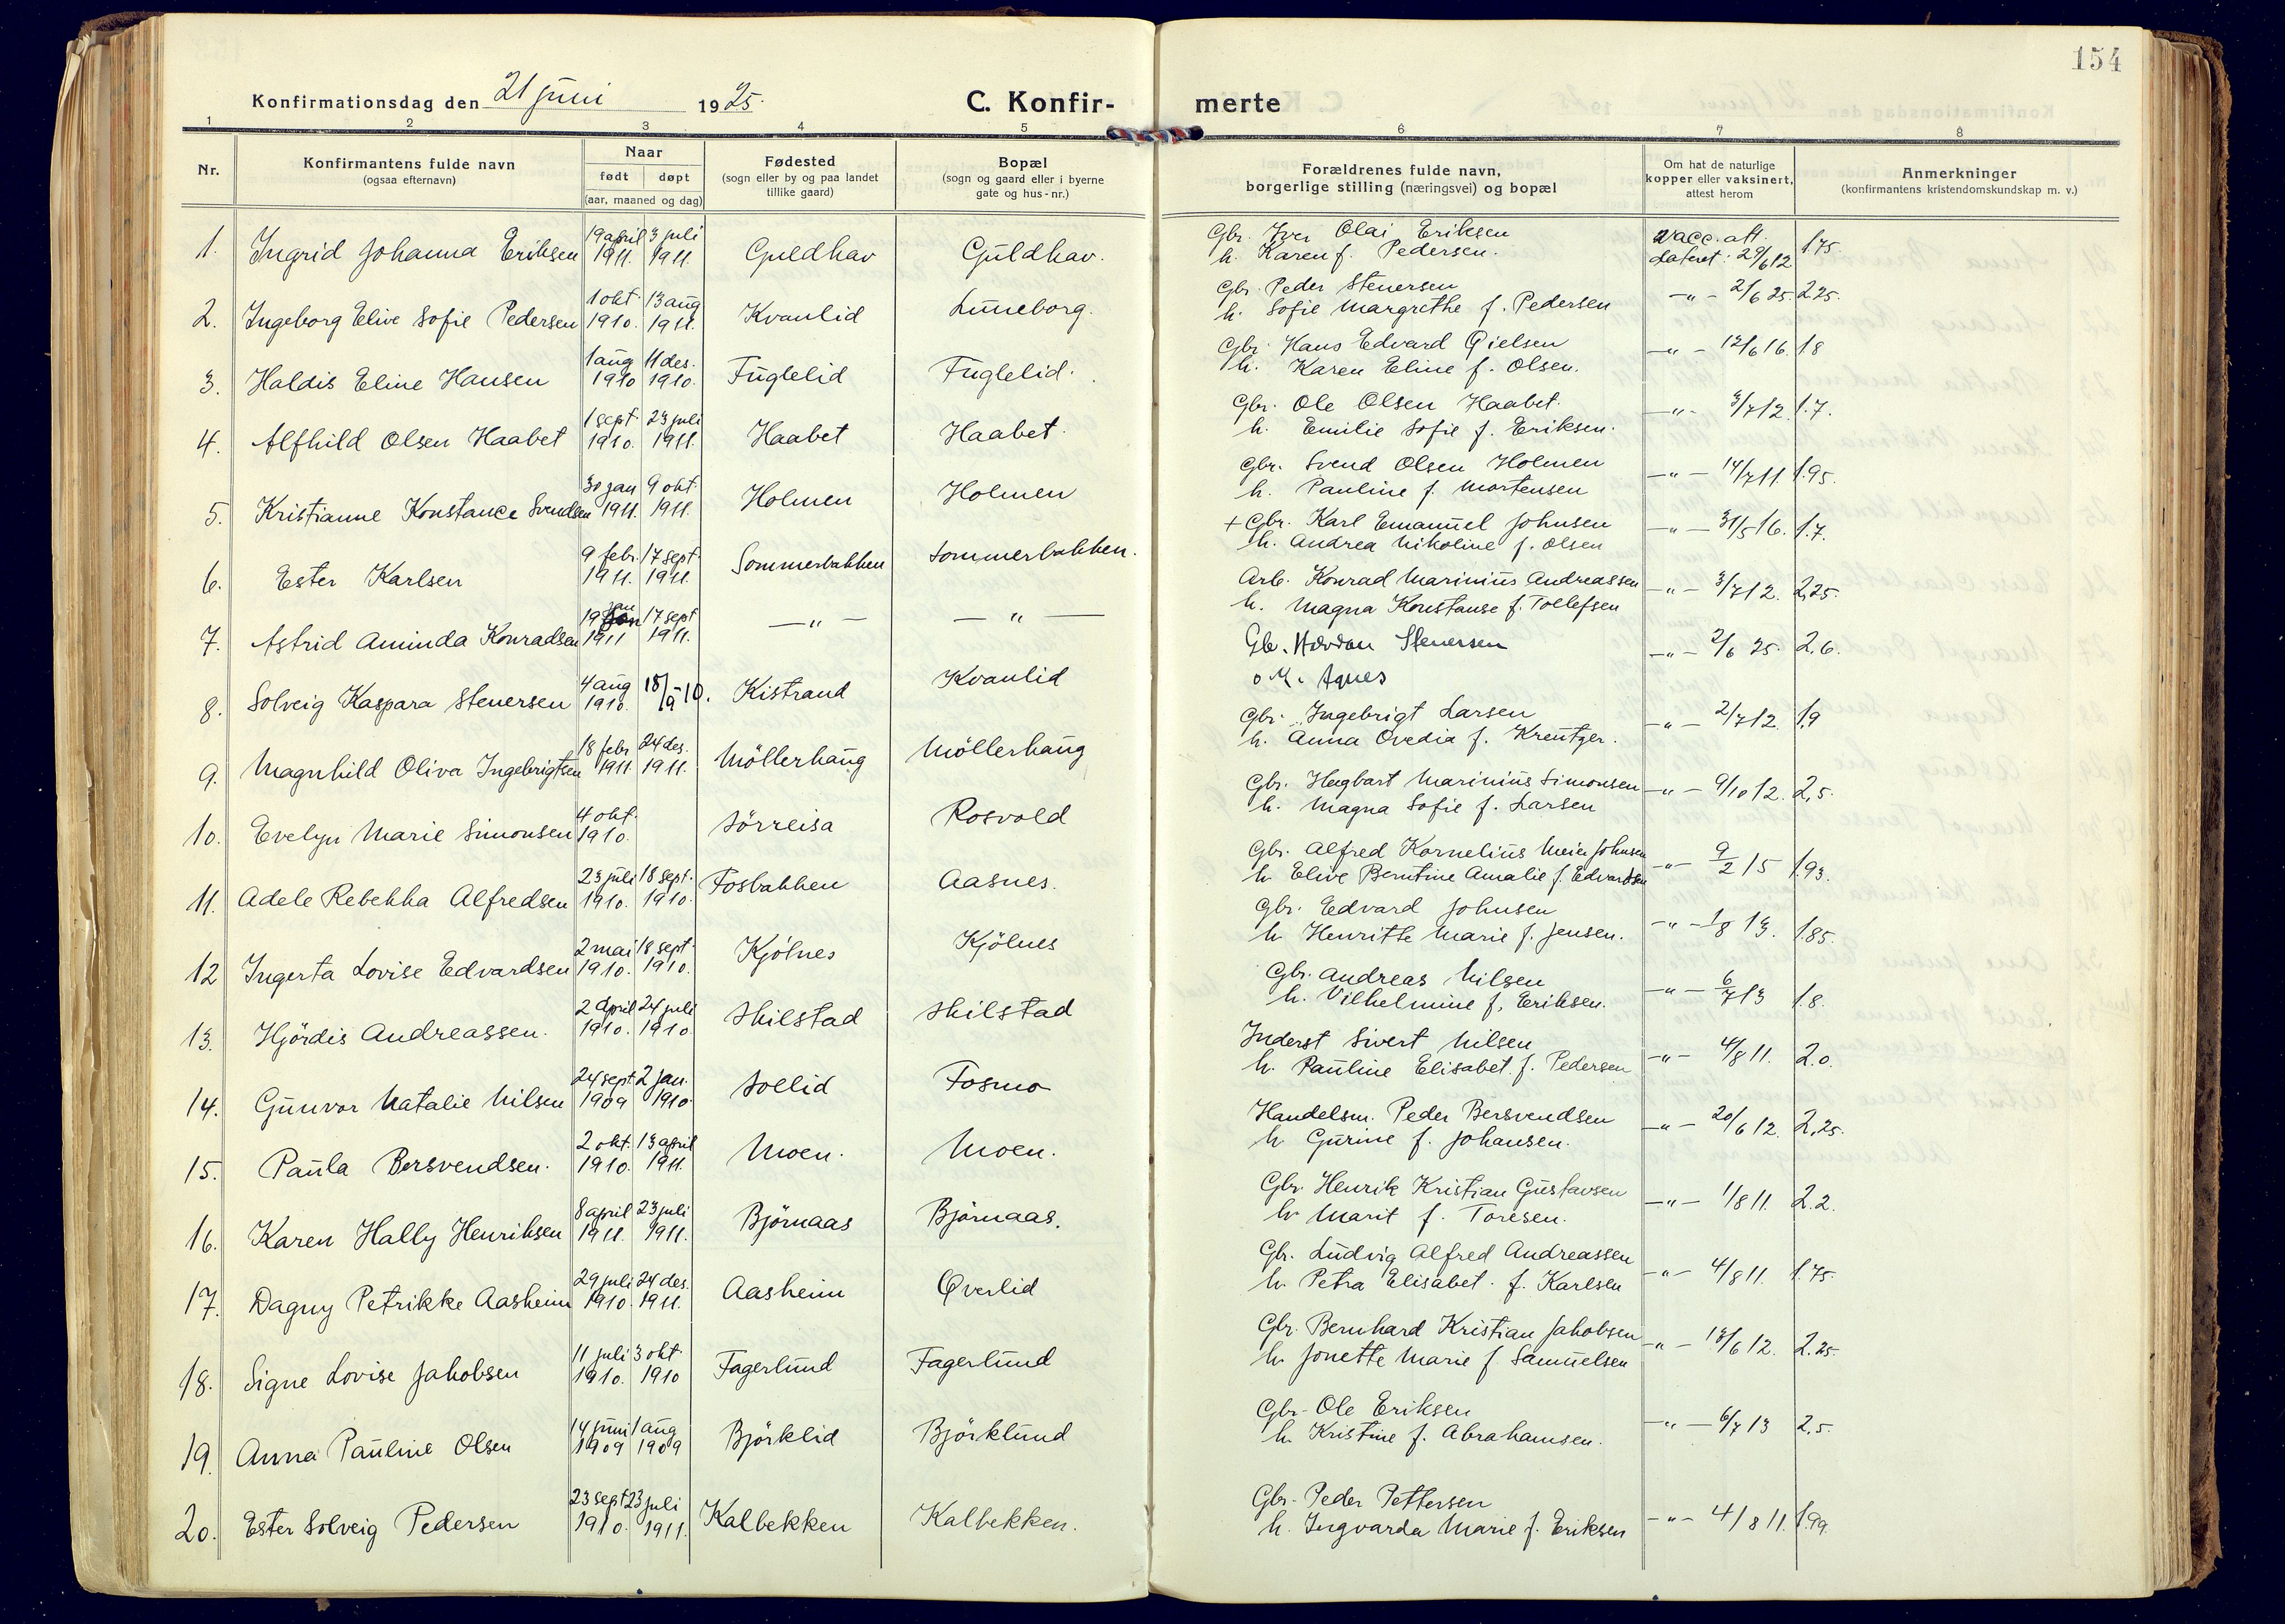 154
Konfirmationsdag den 21 juni 1925.
C. Konfirmerte
1 2 3 4 5 6 7 8
Nr.
Konfirmantens fulde navn
(ogsaa efternavn)
Naar
født døpt
(aar, maaned og dag)
Fødested
(sogn eller by og paa landet
tillike gaard)
Bopæl
(sogn og gaard eller i byerne
gate og hus-nr.)
Forældrenes fulde navn,
borgerlige stilling (næringsvei) og bopæl
Om hat de naturlige
kopper eller vaksinert,
attest herom
Anmerkninger
(konfirmantens kristendomskundskap m. v.)
1. Ingrid Johanna Eriksen 19 april 1911. 3 juli 1911. Guldhav Guldhav. Gbr. Iver Olai Eriksen
h. Karen f. Pedersen. Vacc. att. dateret: 29/6 12 1.75.
2. Ingeborg Elive Sofie Pedersen 1 okt. 1910. 13 aug 1911. Kvanlid Luneborg. Gbr. Peder Stenersen
h. Sofie Margrethe f. Pedersen -"- 2/6 25. 2.25.
3. Haldis Eline Hansen 1 aug 1910 11 des. 1910. Fuglelid Fuglelid. Gbr. Hans Edvard Gielsen
h. Karen Eline f. Olsen. -"- 12/6 16. 1.8
4. Alfhild Olsen Haabet 1 sept. 1910. 23 juli 1911. Haabet Haabet. Gbr. Ole Olsen Haabet.
h. Emilie Sofie f. Eriksen. -"- 3/7 12. 1.7.
5. Kristianne Konstance Svendsen 30 jan 1911. 9 okt. 1911. Holmen Holmen Gbr. Svend Olsen Holmen
h. Pauline f. Mortensen -"- 14/7 11. 1.95.
6. Ester Karlsen 9 febr. 1911. 17 sept. 1911. Sommerbakken Sommerbakken. + Gbr. Karl Emanuel Johnsen
h. Andrea Nikoline f. Olsen -"- 31/5 16. 1.7.
7. Astrid Aminda Konradsen 19 jan 1911 17 sept 1911. -"- -"- Arb. Konrad Marinius Andreassen
h. Magna Konstanse f. Tollefsen -"- 3/7 12. 2,25.
8. Solveig Kaspara Stenersen 4 aug 1910. 18/9-10. Kistrand Kvanlid Gb. Hovdan Stenersen
o. h. Agnes -"- 2/6 25. 2,6.
9. Magnhild Oliva Ingebrigtsen 18 febr 1911. 24 des. 1911. Möllerhaug Möllerhaug Gbr. Ingebrigt Larsen
h. Anna Ovedia f. Kreutzer. -"- 2/7 12. 1,9
10. Evelyn Marie Simonsen 4 okt. 1910. Sörreisa Rosvold Gbr. Hagbart Marinius Simonsen
h. Magna Sofie f. Larsen -"- 9/10 12. 2,5.
11. Adele Rebekka Alfredsen 23 juli 1910. 18 sept. 1910. Fosbakken Aasnes. Gbr. Alfred Kornelius Meier Johnsen
h. Elive Berntine Amalie f. Edvardsen -"- 9/2 15 1.93.
12 Ingerta Lovise Edvardsen 2 mai 1910. 18 sept. 1910. Kjölnes Kjölnes Gbr. Edvard Johnsen
h. Henritte Marie f. Jensen. -"- 1/8 13. 1.85.
13. Hjördis Andreassen. 2 april 1910. 24 juli 1910. Skilstad Skilstad Gbr. Andreas Nilsen
h. Vilhelmine f. Eriksen. -"- 6/7 13 1.8.
14. Gunvor Natalie Nilsen 24 sept. 1909 2 jan. 1910. Sollid Fosmo Inderst Sivert Nilsen
h. Pauline Elisabet. f. Pedersen -"- 4/8 11. 2.0.
15. Paula Bersvendsen. 2 okt. 1910. 13 april 1911. Moen. Moen. Handelsm. Peder Bersvendsen
h. Gurine f. Johansen. -"- 20/6 12. 2,25.
16. Karen Hally Henriksen 8 april 1911. 23 juli 1911. Björnaas Björnaas. Gbr. Henrik Kristian Gustavsen
h. Marit f. Toresen. -"- 1/8 11. 2.2.
17. Dagny Petrikke Aasheim 29 juli 1910. 24 des. 1911. Aasheim Överlid Gb. Ludvig Alfred Andreassen
h. Petra Elisabet. f. Karlsen -"- 4/8 11. 1.75.
18. Signe Lovise Jakobsen 11 juli 1910. 3 okt. 1910 Fagerlund Fagerlund Gbr. Bernhard Kristian Jakobsen
h. Jonette Marie f. Samuelsen -"- 13/6 12. 2.25.
19. Anna Pauline Olsen 14 juni 1909 1 aug 1909 Björklid Björklund Gbr. Ole Eriksen
h. Kristine f. Abrahamsen. -"- 6/7 13 2,5.
20. Ester Solveig Pedersen 23 sept. 1910. 23 juli 1911. Kalbekken Kalbekken. Gbr. Peder Pettersen
h. Ingvarda Marie f. Eriksen -"- 4/8 11. 1.99.